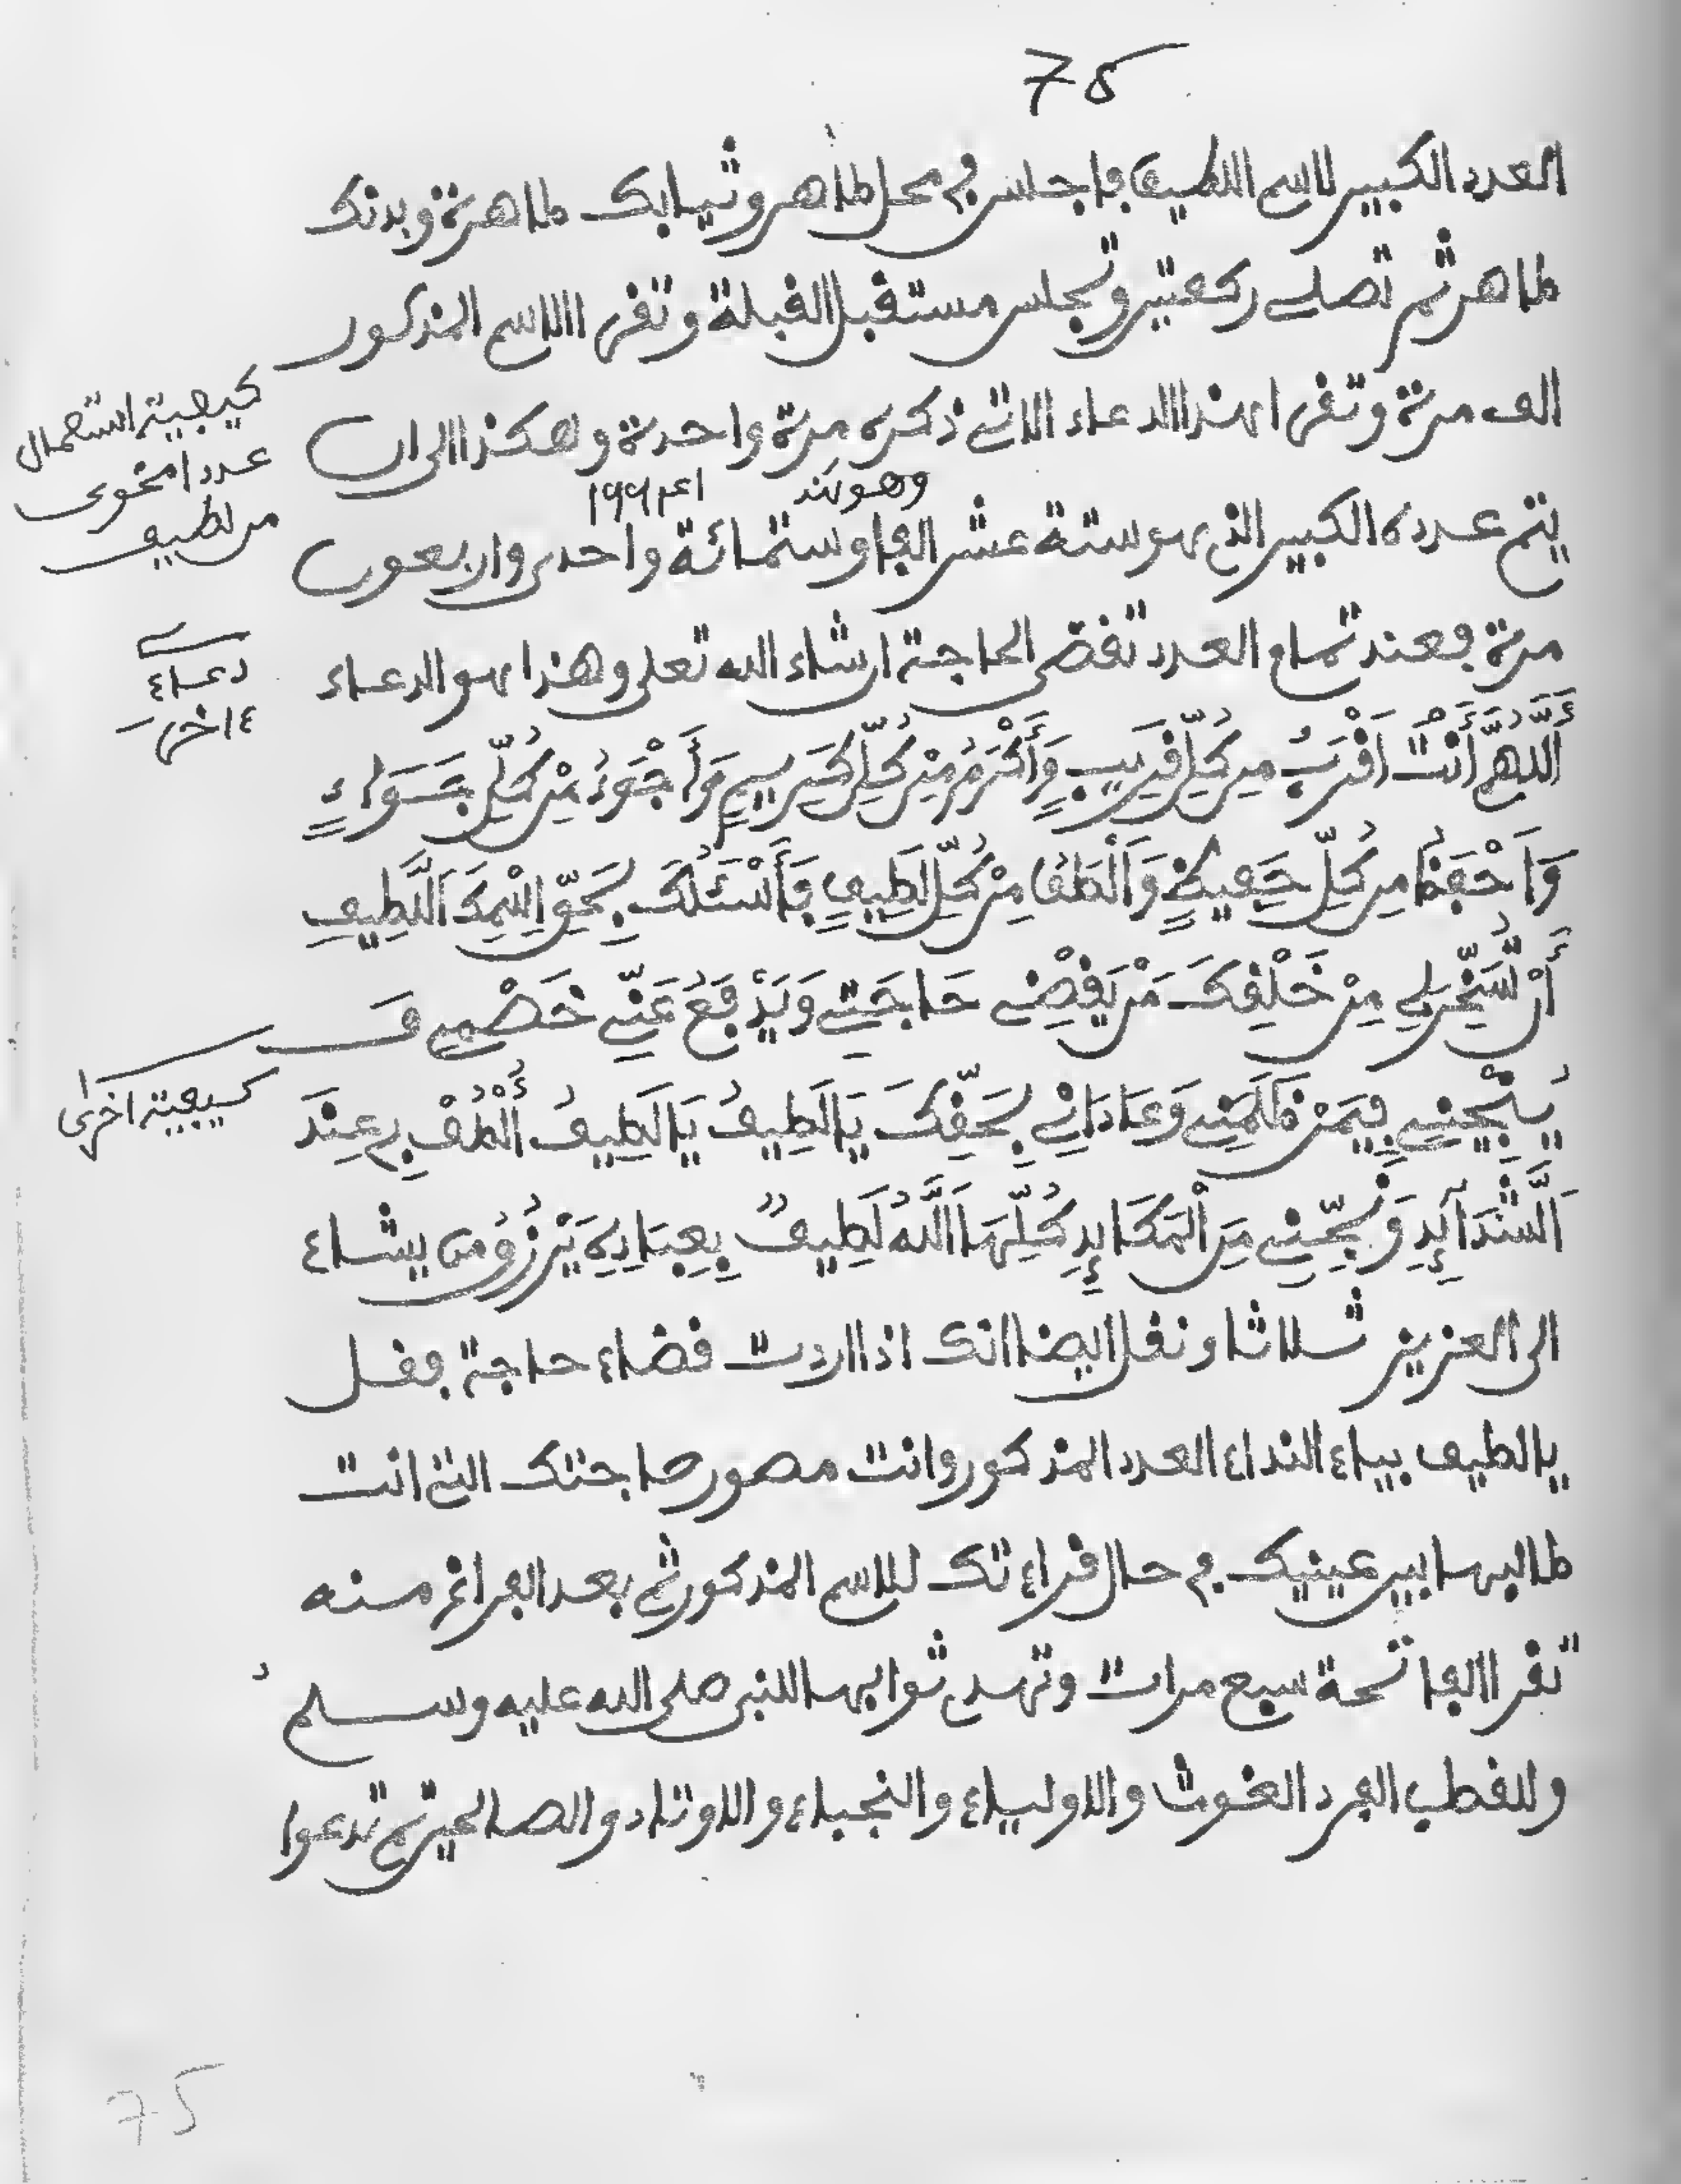 75
العدد الكبير لاسم اللطيف فاجلس في محل طاهر وثيابك طاهرة وبدنك
طاهر ثم تصلے ركعتين وتجلس مستقبل القبلة وتقرا الاسم المذكور
الف مرة وتقرا هذا الدعاء الاتے ذكره مرة واحدة وهكذا الى ان
وهو
يتم عدده الكبير الذي هو ستة عشر الفا وستمائة واحدى واربعون
مرة فعند تمام العدد تقضى الحاجة ان شاء الله تعلى وهذا هو الدعاء
أَللَّهُمَّ أَنْتَ أَقْرَبُ مِن كُلِّ قَرِيبٍ وَأَكْرَمُ مِنْ كُلِّ كَرِيمٍ وَأَجْوَدُ مِنْ كُلِّ جَوَادٍ
وَاَحْفَظُ مِن كُلِّ حَفِيظٍ وَأَلْطَفُ مِنْ كُلِّ لَطِيفٍ فَأَسْئَلُكَ بِحَقِّ اِسْمِكَ اَللَّطِيفِ
أَنْ تُسَخِّرَ لِي مِنْ خَلْقِكَ مَنْ يَقْضِے حَاجَتِے وَيَدْفَعُ عَنِّے خَصْمِي وَ
يُنْجِينِے فِيمَنْ ظَلَمَنِے وَعَادَانِے بِحَقِّكَ يَالَطِيفُ يَالَطِيفُ أُلْطُفْ بِي عِنْدَ
اَلشَّدَآئِدِ وَنَجِّنِے مِنَ اَلْمَكَائِدِ كُلِّهَا اَللَّهُ لَطِيفٌ بِعِبَادِهِ يَرْزُقُ من يشاء
الى العزيز ثلاثا ونقل ايضا انك اذا اردت قضاء حاجة فقل
يالطيف بياء النداء العدد المذكور وانت مصور حاجتك التے انت
طالبها بين عينيك في حال قراءتك للاسم المذكور ثم بعد الفراغ منه
تقرا الفاتحة سبع مرات وتهدي ثوابها للنبي صلى الله عليه وسلم
وللقطب الفرد الغوث والاولياء والنجباء والاوتاد والصالحين ثم تدعوا
كيفية استعمال
عدد اخرى
من لطيف
دعاء
ءاخر
كيفية اخرى
75